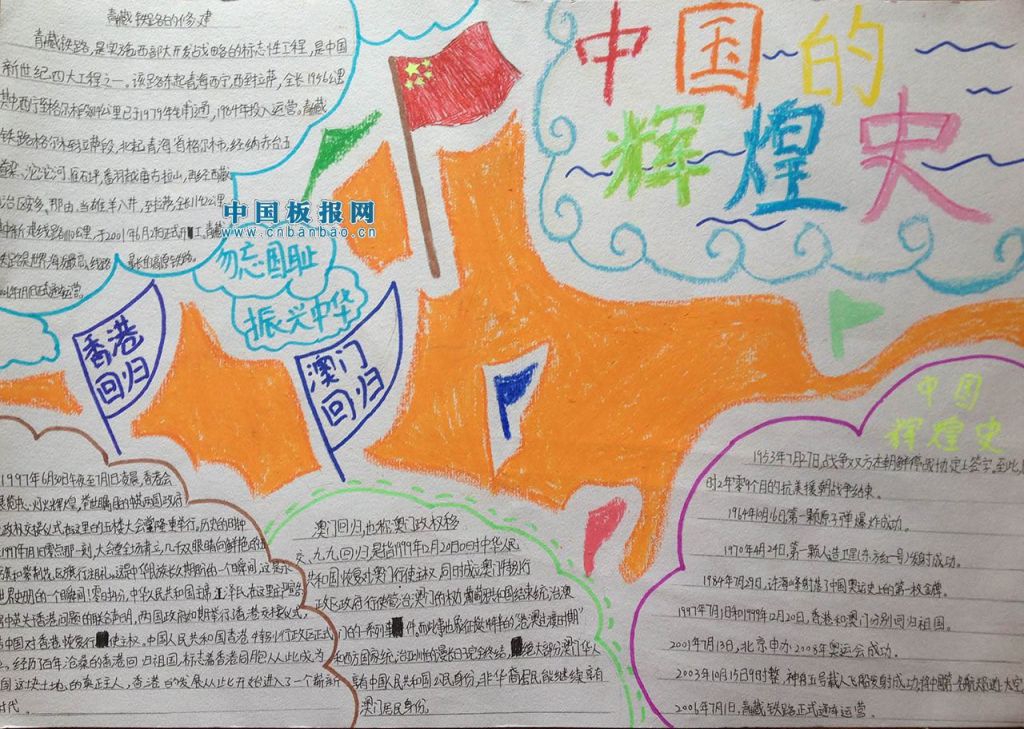 青藏铁路的修建
青藏铁路,是实施西部大开发战略的标志性工程,是中国
新世纪四大工程之一。该路东起青海西宁,西到拉萨,全长1956公里
其中西宁至格尔木段
已于1979年
1984年投入运营。青藏
铁路格尔木到拉萨段,北起青海省格尔木市,经纳赤台五
沱沱河
越唐古拉山,再经西藏
自治区安多、那曲、当雄羊八井,至拉萨全长1142公里
于2001年6月29日正式开工。青藏
中国板报网
www.cnbanbao.cn
勿忘国耻
振兴中华
中国的
辉煌史
香港
回归
澳门
回归
1997年6月30日午夜至7月1日凌晨,香港会
政权交接仪式在这里的五楼大会堂隆重举行,历史的时钟
世界文明的一个瞬间!零时四分,中华人民共和国主席江泽民在这里
中英关于香港问题的联合声明,两国政府如期举行了香港交接仪式,
中国对香港恢复行使主权。中国人民共和国香港特别行政区正式
经历百年沧桑的香港回归祖国,标志着香港同胞从此成为
国这块土地的真正主人,香港的发展从此开始进入了一个崭新
时代。
澳门回归,也称澳门政权移
交、九九回归是指1999年12月20日0时中华人民
共和国恢复对澳门行使主权,同时成立澳门特别行
政区政府行使管治澳门的权力葡萄牙共和国结束统治澳
门的一系列事件。而此事也象征
和西方国家统治亚洲的漫长日子完全终结,
绝大部分澳门华人
享有中国人民共和国公民身份,非华裔居民能继续享有
澳门居民身份。
中国
辉煌史
1953年7月27日,战争双方在朝鲜停战协定上签字,至此,历
时2年零9个月的抗美援朝战争结束。
1964年10月16日第一颗原子弹爆炸成功。
1970年4月24日,第一颗人造卫星(东方红一号)发射成功。
1984年7月29日,许海峰射落了中国奥运史上的第一枚金牌。
1997年7月1日和1999年12月20日,香港和澳门分别回归祖国。
2001年7月13日,北京申办2008年奥运会成功。
2003年10月15日9时整,神舟五号载人飞船发射成功,将中国第一名航天员送上太空
2006年7月1日,青藏铁路正式通车运营。